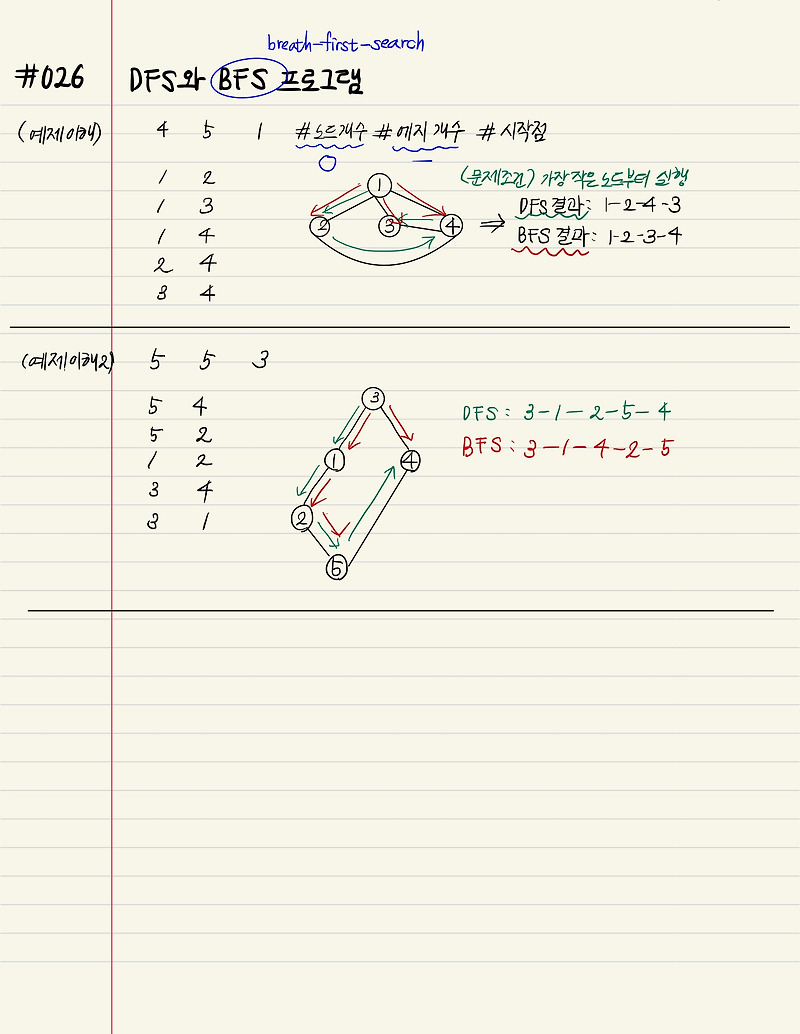 breath-first-search
#026 DFS와 BFS 프로그램
(예제이해) 4 5 1 #노드개수 #에지개수 #시작점
1 2
1 3
1 4
2 4
3 4
1
2 3 4
(문제조건) 가장 작은 노드부터 실행
⇒ DFS 결과: 1-2-4-3
BFS 결과: 1-2-3-4
(예제이해2) 5 5 3
5 4
5 2
1 2
3 4
3 1
3
1 4
2
5
DFS: 3-1-2-5-4
BFS: 3-1-4-2-5